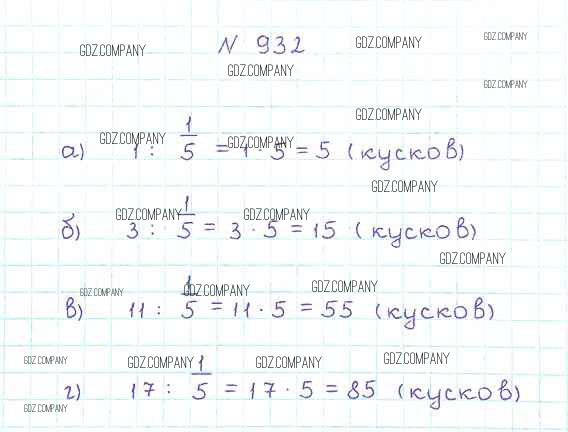 GDZ.COMPANY № 932 GDZ.COMPANY GDZ.COMPANY
GDZ.COMPANY GDZ.COMPANY
GDZ.COMPANY
GDZ.COMPANY GDZ.COMPANY
а) 1 : 1/5 = 1 · 5 = 5 (кусков)
GDZ.COMPANY
GDZ.COMPANY GDZ.COMPANY
б) 3 : 1/5 = 3 · 5 = 15 (кусков)
GDZ.COMPANY
GDZ.COMPANY GDZ.COMPANY GDZ.COMPANY
в) 11 : 1/5 = 11 · 5 = 55 (кусков)
GDZ.COMPANY GDZ.COMPANY GDZ.COMPANY GDZ.COMPANY
г) 17 : 1/5 = 17 · 5 = 85 (кусков)
GDZ.COMPANY